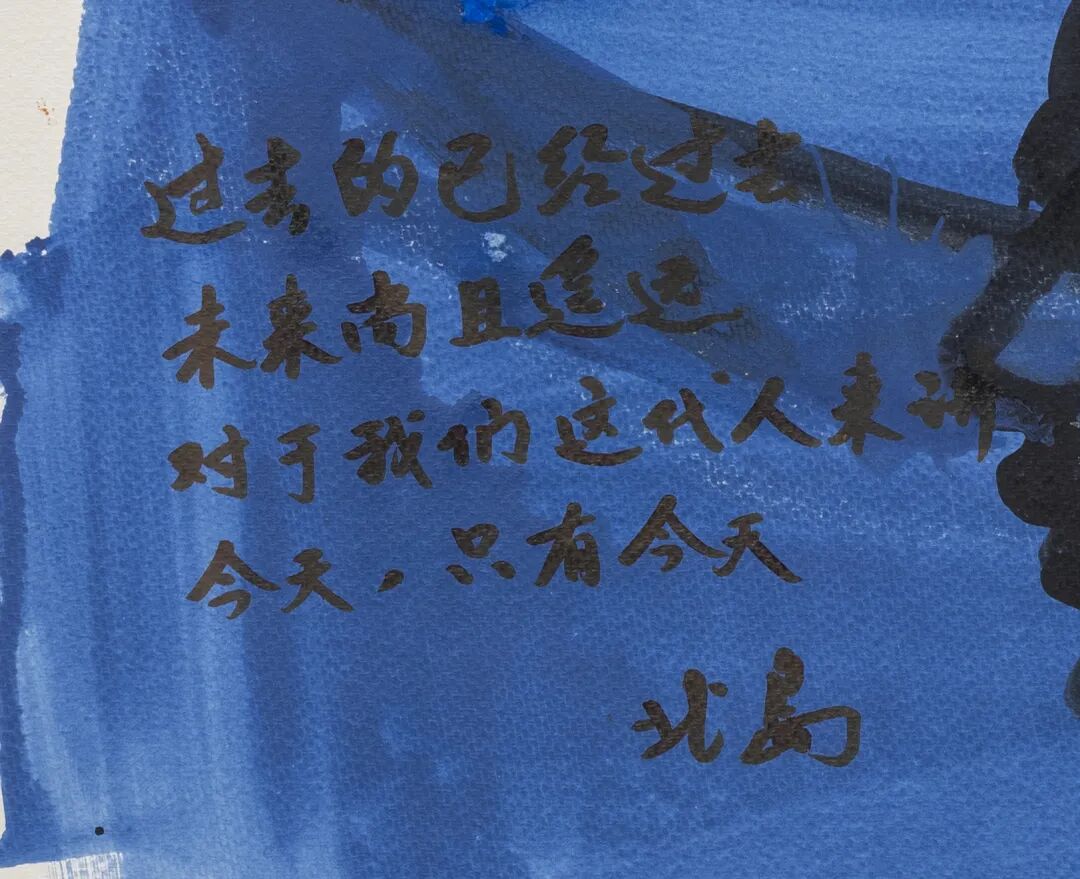 过去的已经过去
未来尚且遥远
对于我们这代人来讲
今天，只有今天
北岛